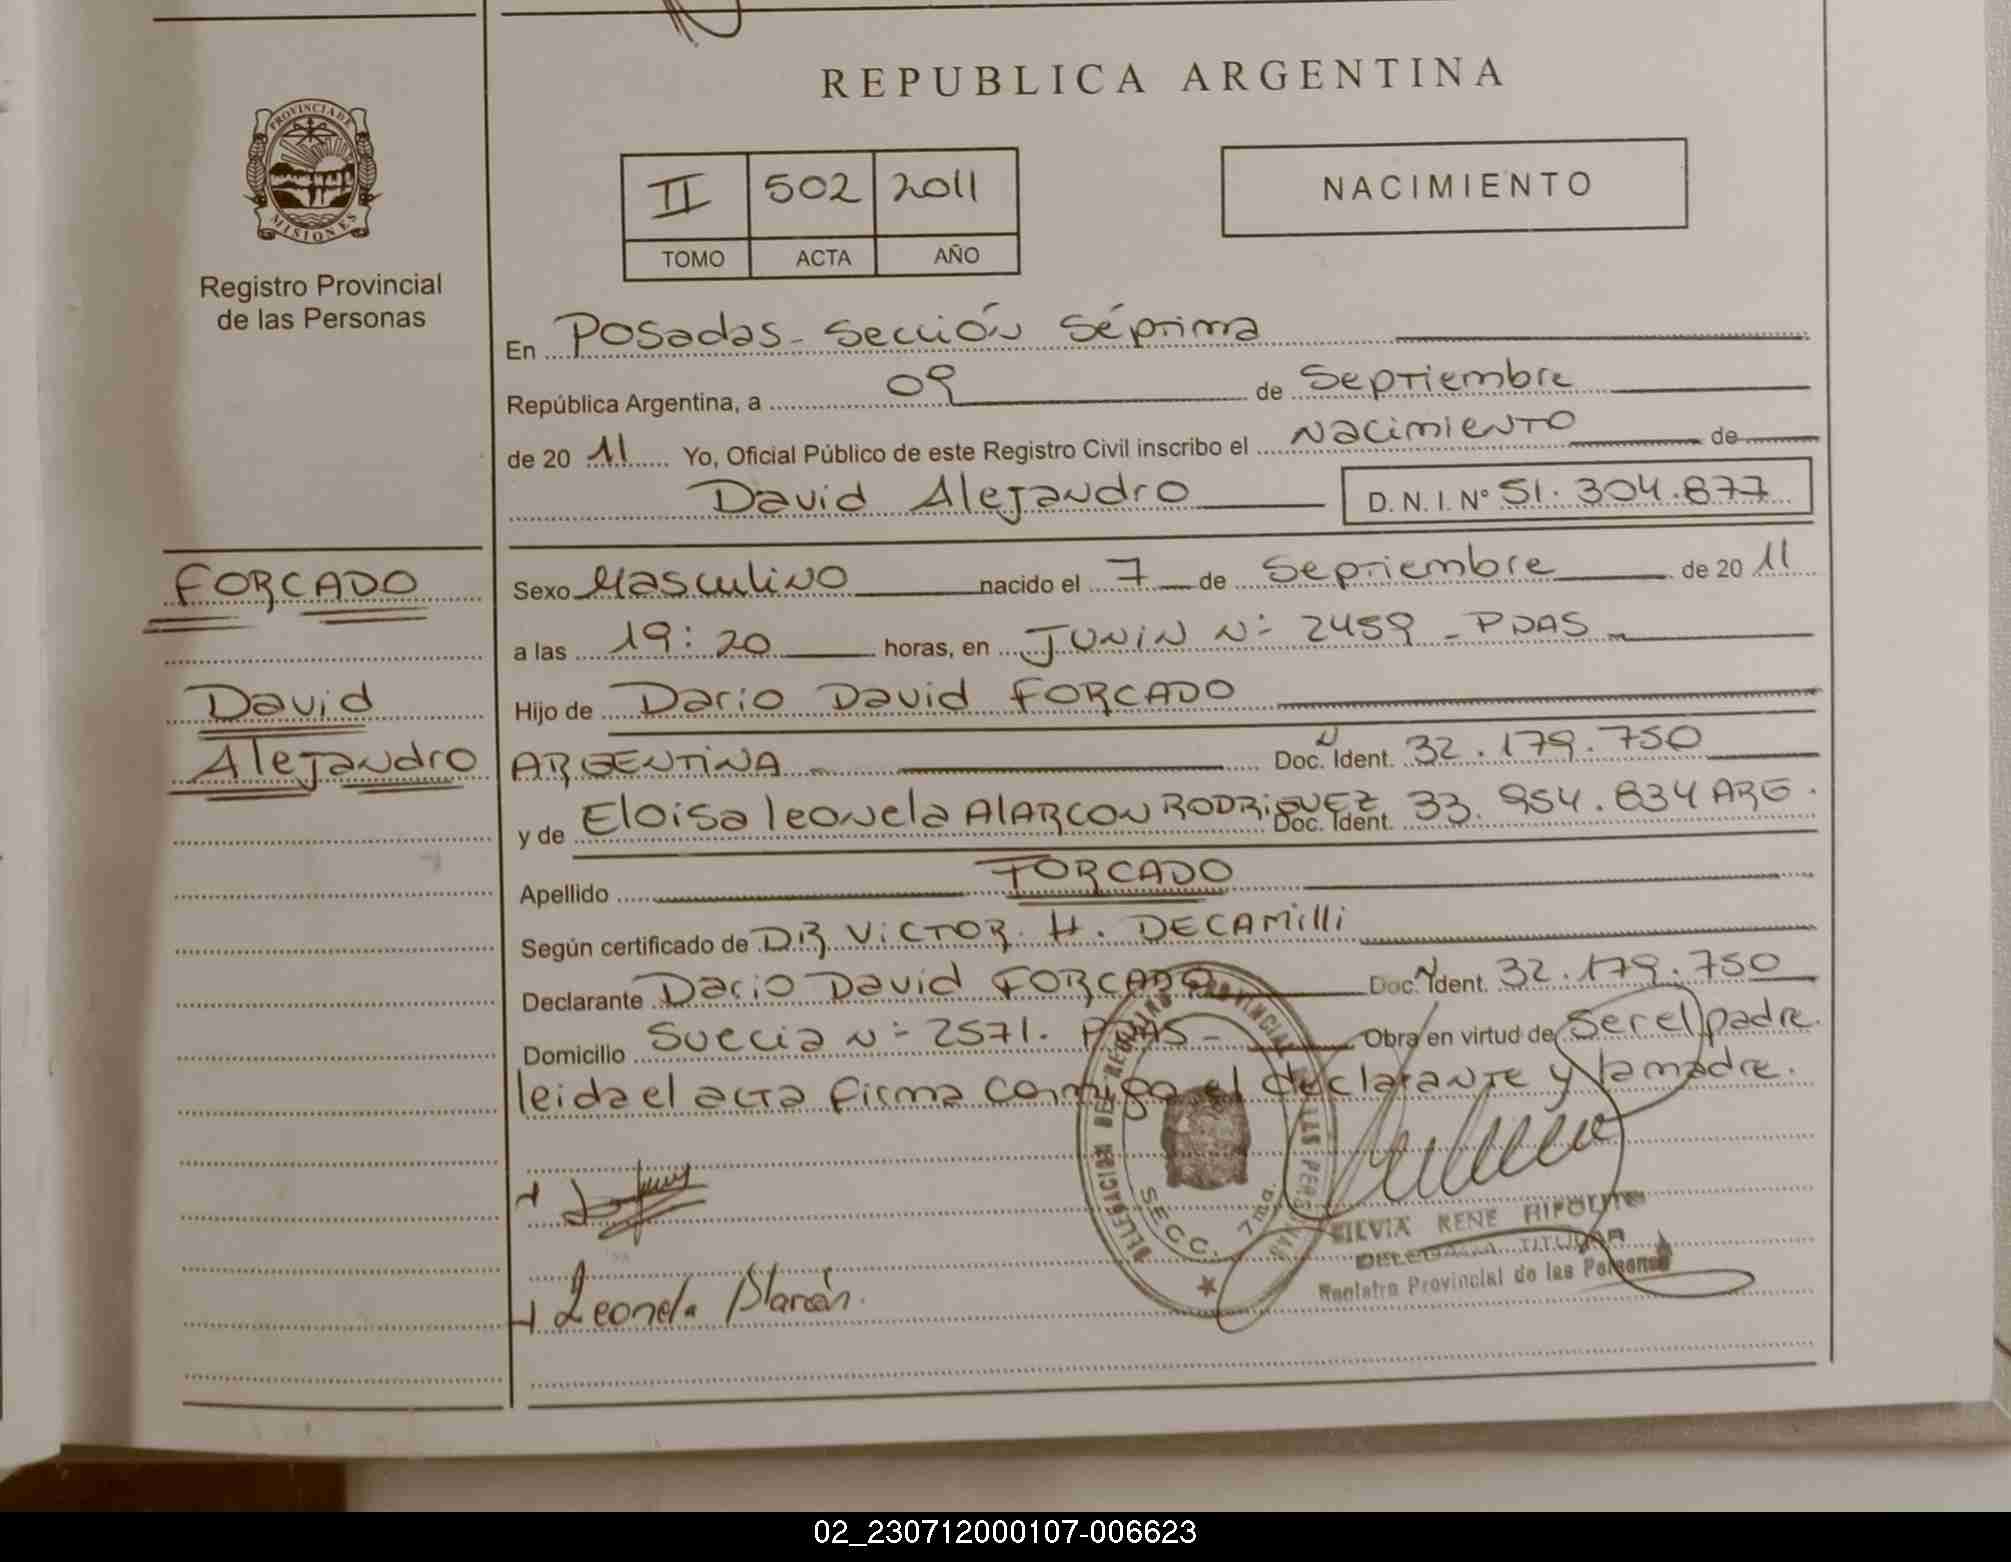 REPUBLICA ARGENTINA
PROVINCIA DE
MISIONES
Registro Provincial
de las Personas
II 502 2011
TOMO ACTA AÑO
NACIMIENTO
En Posadas - Sección Séptima
República Argentina, a 09 de Septiembre
de 20 11 Yo, Oficial Público de este Registro Civil inscribo el Nacimiento de
David Alejandro D.N.I. Nº 51.304.877
FORCADO
David
Alejandro
Sexo Masculino nacido el 7 de Septiembre de 20 11
a las 19:20 horas, en JUNIN Nº 2459 - PDAS -
Hijo de Dario David FORCADO
ARGENTINA - Doc. Ident. 32.179.750
y de Eloisa leonela AlARCON RODRIGUEZ Doc. Ident. 33.954.834 ARG.
Apellido FORCADO
Según certificado de DR VICTOR H. DECAMilli
Declarante Dario David FORCADO Doc. Ident. 32.179.750
Domicilio Suecia Nº 2571. PDAS - Obra en virtud de Ser el padre.
leida el acta firma conmigo el declarante y la madre.
Leonela Alarcón.
DELEGACION DEL REGISTRO PROVINCIAL DE LAS PERSONAS
SECC. 7ma.
SILVIA RENE HIPOLITO
DELEGADA TITULAR
Registro Provincial de las Personas
02_230712000107-006623